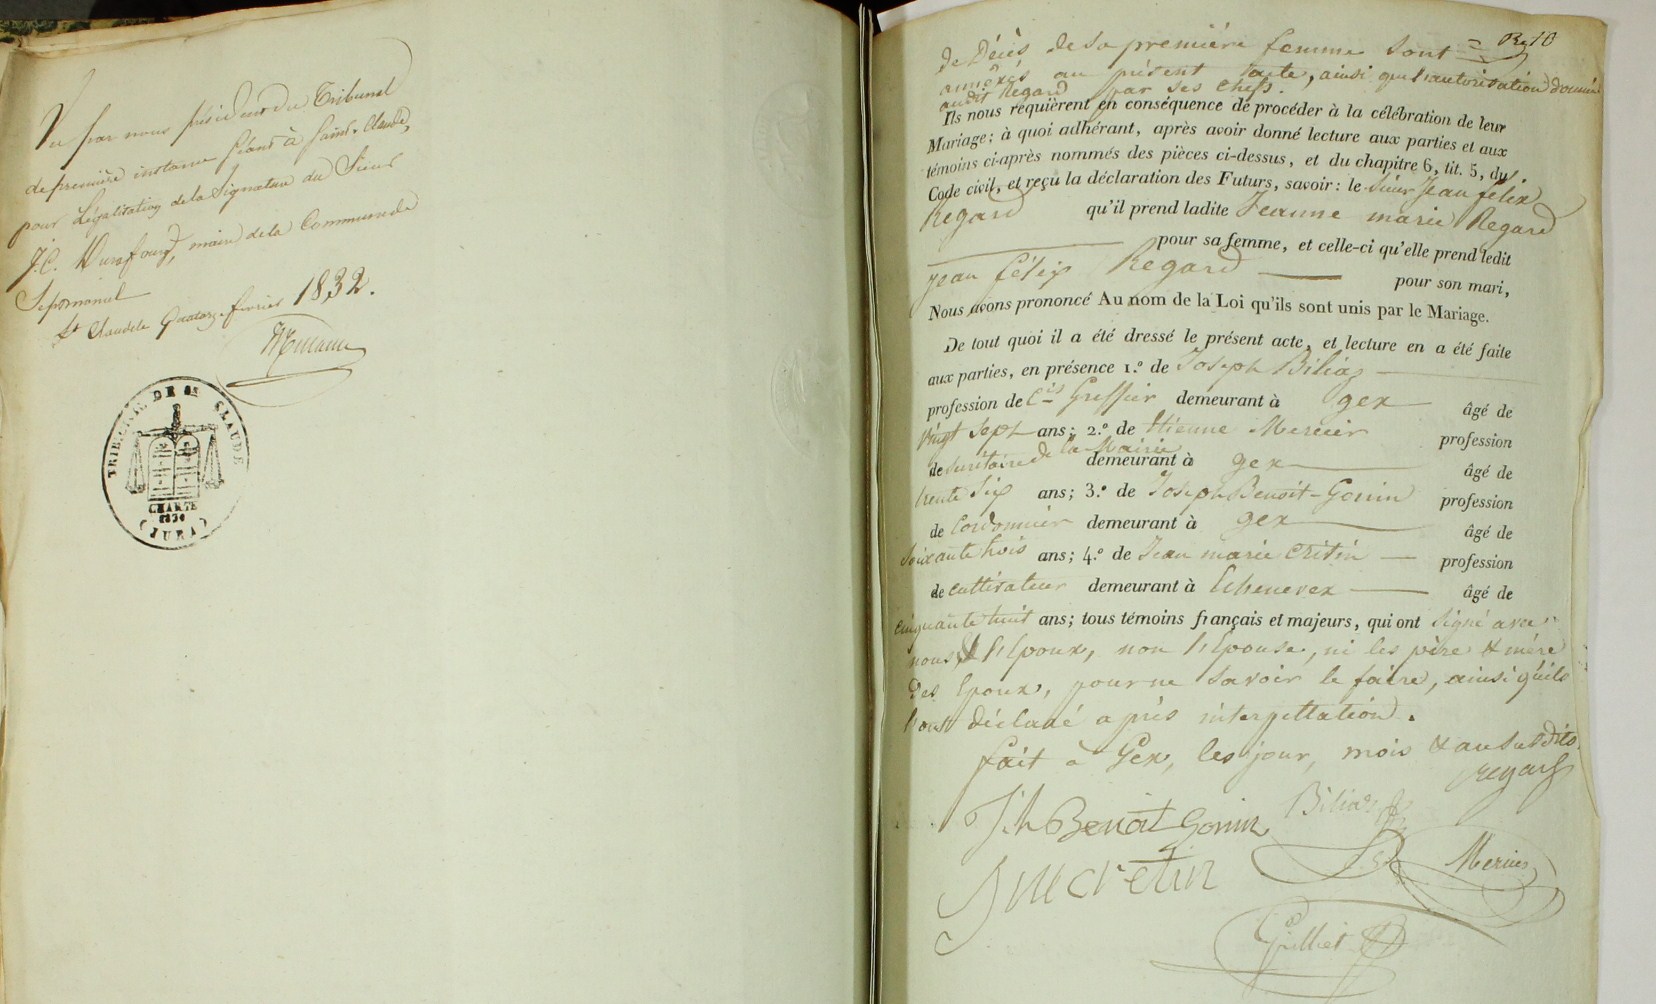 Vu par nous président du Tribunal
de première instance séant à Saint-Claude,
pour Légalisation de la Signature du Sieur
J. C. Durafourg, maire de la Commune de
Septmoncel
St Claude le Quatorze février 1832.
TRIBUNAL DE St CLAUDE
CHARTE
1830
(JURA)
de Décès de sa première femme sont
annexés au présent acte, ainsi que l'autorisation donnée
audit Regard par ses chefs.
Ils nous requièrent en conséquence de procéder à la célébration de leur
Mariage; à quoi adhérant, après avoir donné lecture aux parties et aux
témoins ci-après nommés des pièces ci-dessus, et du chapitre 6, tit. 5, du
Code civil, et reçu la déclaration des Futurs, savoir: le sieur Jean félix
Regard qu'il prend ladite Jeanne marie Regard
pour sa femme, et celle-ci qu'elle prend ledit
jean félix Regard pour son mari,
Nous avons prononcé Au nom de la Loi qu'ils sont unis par le Mariage.
De tout quoi il a été dressé le présent acte, et lecture en a été faite
aux parties, en présence 1.° de Joseph Biliaz
profession de Cis Greffier demeurant à gex âgé de
vingt sept ans; 2.° de Etienne Mercier profession
de secrétaire de la Mairie demeurant à gex âgé de
trente six ans; 3.° de Joseph Benoit-Gonin profession
de Cordonnier demeurant à gex âgé de
soixante trois ans; 4.° de Jean marie Crétin profession
de cultivateur demeurant à Echenevex âgé de
cinquante huit ans; tous témoins français et majeurs, qui ont signé avec
nous & l'Epoux, non l'Epouse, ni les père & mère
des Epoux, pour ne savoir le faire, ainsi qu'ils
l'ont déclaré après interpellation.
fait à Gex, les jour, mois & an susdits.
regard
J.h Benoit Gonin Biliaz
Mercier
J m cretin
Grilliet